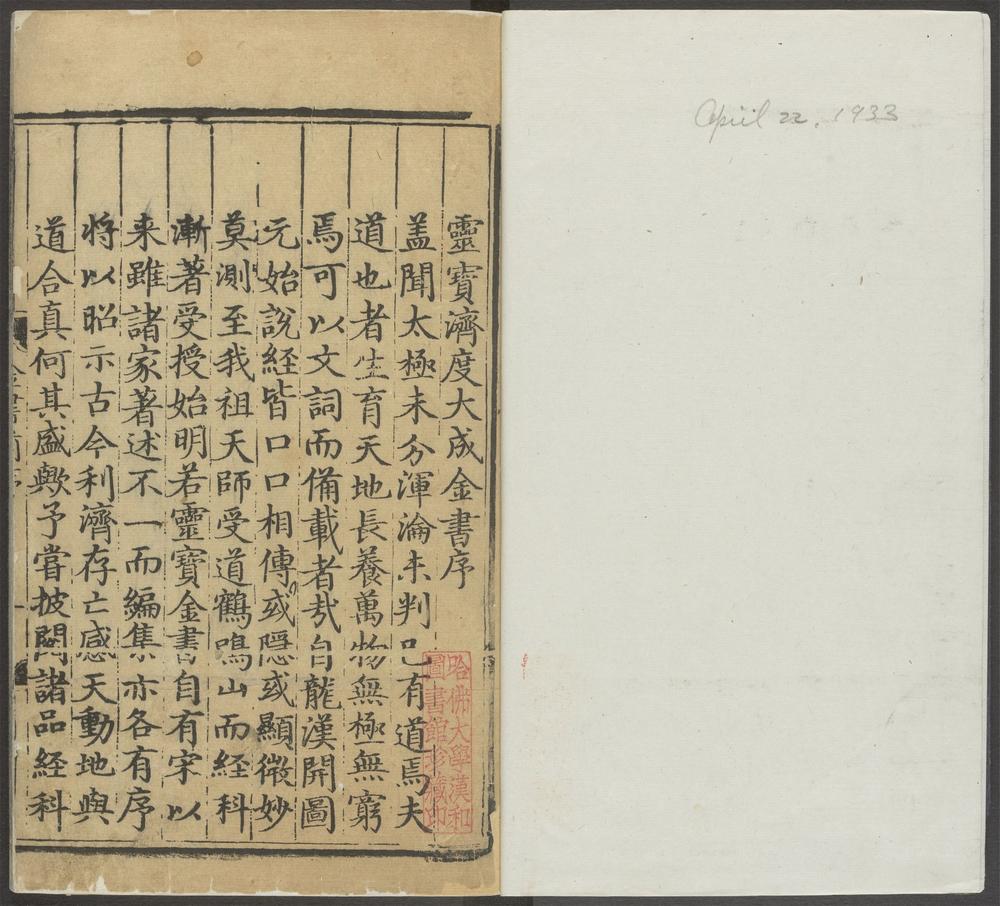 April 22, 1933
靈寶濟度大成金書序
盖聞太極未分渾淪未判已有道焉夫
道也者生育天地長養萬物無極無窮
焉可以文詞而俻載者㢤自龍漢開圖
元始說經皆口口相傳或隠或顯微妙
莫測至我祖天師受道鶴鳴山而經科
漸著受授始明若靈寶金書自有宋以
来雖諸家著述不一而編集亦各有序
将以昭示古今利濟存亡感天動地與
道合真何其盛歟予嘗披閱諸品經科
哈佛大學漢和
圖書館珍藏印